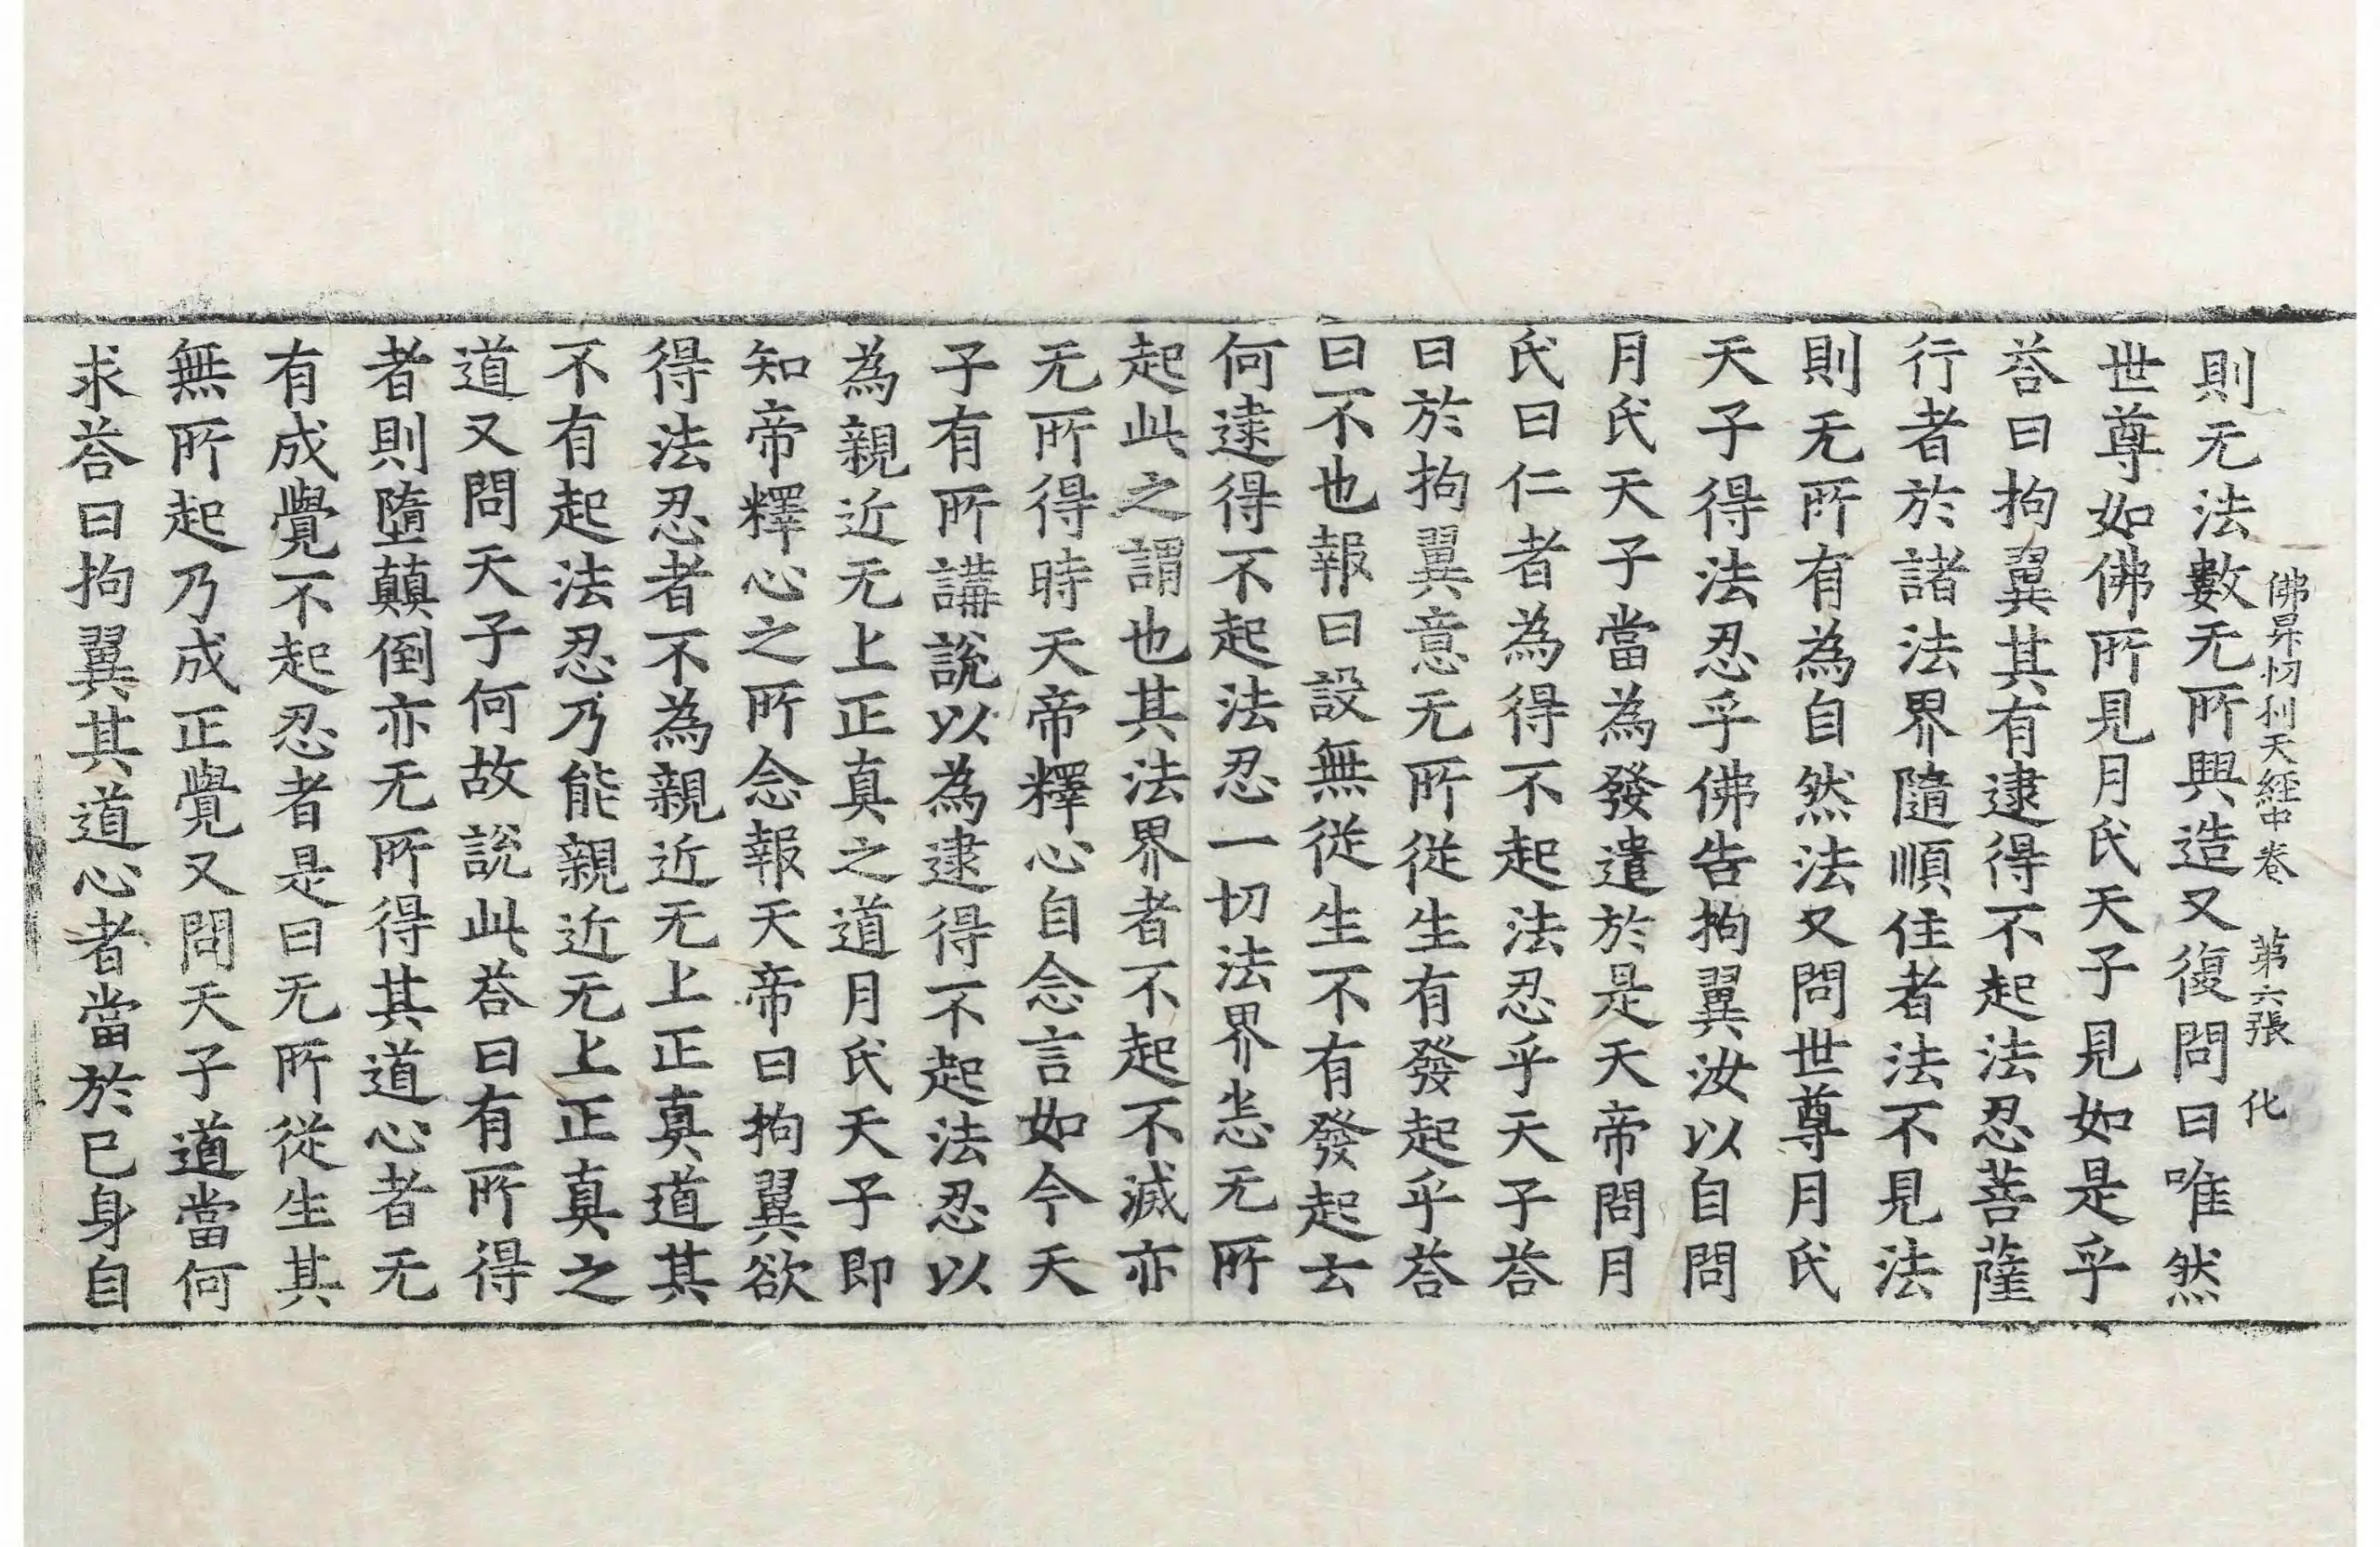 佛昇忉利天經中卷 第六張 化
則无法數无所興造又復問曰唯然
世尊如佛所見月氏天子見如是乎
荅曰拘翼其有逮得不起法忍菩薩
行者於諸法界隨順住者法不見法
則无所有為自然法又問世尊月氏
天子得法忍乎佛告拘翼汝以自問
月氏天子當為發遣於是天帝問月
氏曰仁者為得不起法忍乎天子荅
曰於拘翼意无所從生有發起乎荅
曰不也報曰設無從生不有發起去
何逮得不起法忍一切法界恙无所
起此之謂也其法界者不起不滅亦
无所得時天帝釋心自念言如今天
子有所講說以為逮得不起法忍以
為親近无上正真之道月氏天子即
知帝釋心之所念報天帝曰拘翼欲
得法忍者不為親近无上正真道其
不有起法忍乃能親近无上正真之
道又問天子何故說此荅曰有所得
者則墮顛倒亦无所得其道心者无
有成覺不起忍者是曰无所從生其
無所起乃成正覺又問天子道當何
求荅曰拘翼其道心者當於已身自